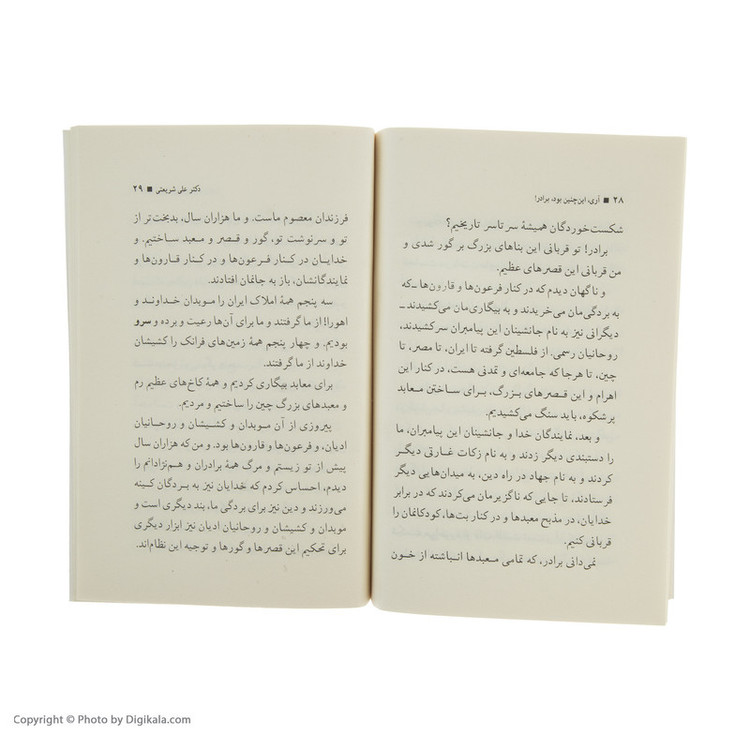 ۲۸ ■ آری، این‌چنین بود، برادر!
شکست‌خوردگان همیشهٔ سرتاسر تاریخیم؟
برادر! تو قربانی این بناهای بزرگ بر گور شدی و
من قربانی این قصرهای عظیم.
و ناگهان دیدم که در کنار فرعون‌ها و قارون‌ها ـ‌که
به بردگی‌مان می‌خریدند و به بیگاری‌مان می‌کشیدند ـ
دیگرانی نیز به نام جانشینان این پیامبران سرکشیدند،
روحانیان رسمی. از فلسطین گرفته تا ایران، تا مصر، تا
چین، تا هرجا که جامعه‌ای و تمدنی هست، در کنار این
اهرام و این قصرهای بزرگ، برای ساختن معابد
پرشکوه، باید سنگ می‌کشیدیم.
و بعد، نمایندگان خدا و جانشینان این پیامبران، ما
را دستبندی دیگر زدند و به نام زکات غارتی دیگر
کردند و به نام جهاد در راه دین، به میدان‌هایی دیگر
فرستادند، تا جایی که ناگزیرمان می‌کردند که در برابر
خدایان، در مذبح معبدها و در کنار بت‌ها، کودکانمان را
قربانی کنیم.
نمی‌دانی برادر، که تمامی معبدها انباشته از خون
دکتر علی شریعتی ■ ۲۹
فرزندان معصوم ماست. و ما هزاران سال، بدبخت‌تر از
تو و سرنوشت تو، گور و قصر و معبد ساختیم. و
خدایان در کنار فرعون‌ها و در کنار قارون‌ها و
نمایندگانشان، باز به جانمان افتادند.
سه پنجم همهٔ املاک ایران را موبدان خداوند و
اهورا! از ما گرفتند و ما برای آن‌ها رعیت و برده و سرو
بودیم. و چهار پنجم همهٔ زمین‌های فرانک را کشیشان
خداوند از ما گرفتند.
برای معابد بیگاری کردیم و همهٔ کاخ‌های عظیم رم
و معبدهای بزرگ چین را ساختیم و مردیم.
پیروزی از آن موبدان و کشیشان و روحانیان
ادیان، و فرعون‌ها و قارون‌ها بود. و من که هزاران سال
پیش از تو زیستم و مرگ همهٔ برادران و هم‌نژادانم را
دیدم، احساس کردم که خدایان نیز به بردگان کینه
می‌ورزند و دین نیز برای بردگی ما، بند دیگری است و
موبدان و کشیشان و روحانیان ادیان نیز ابزار دیگری
برای تحکیم این قصرها و گورها و توجیه این نظام‌اند.
Copyright © Photo by Digikala.com